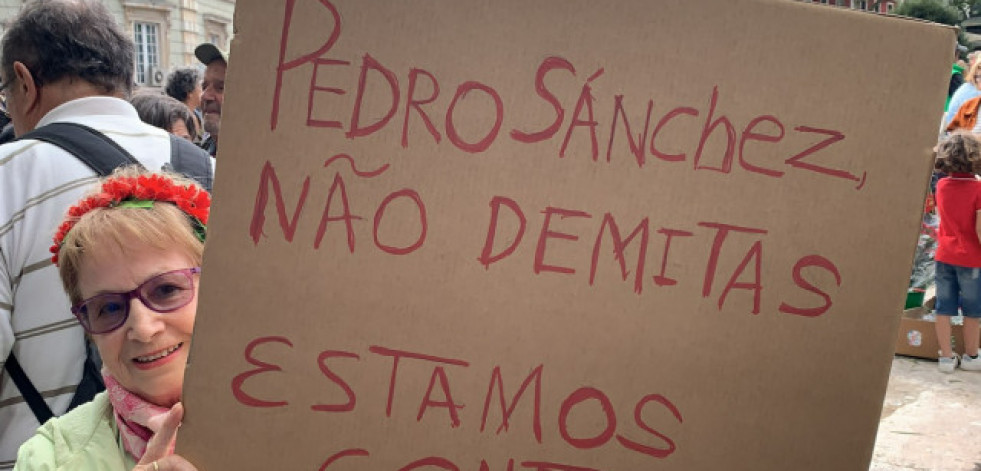 PEDRO SÁNCHEZ,
NÃO DEMITAS
ESTAMOS